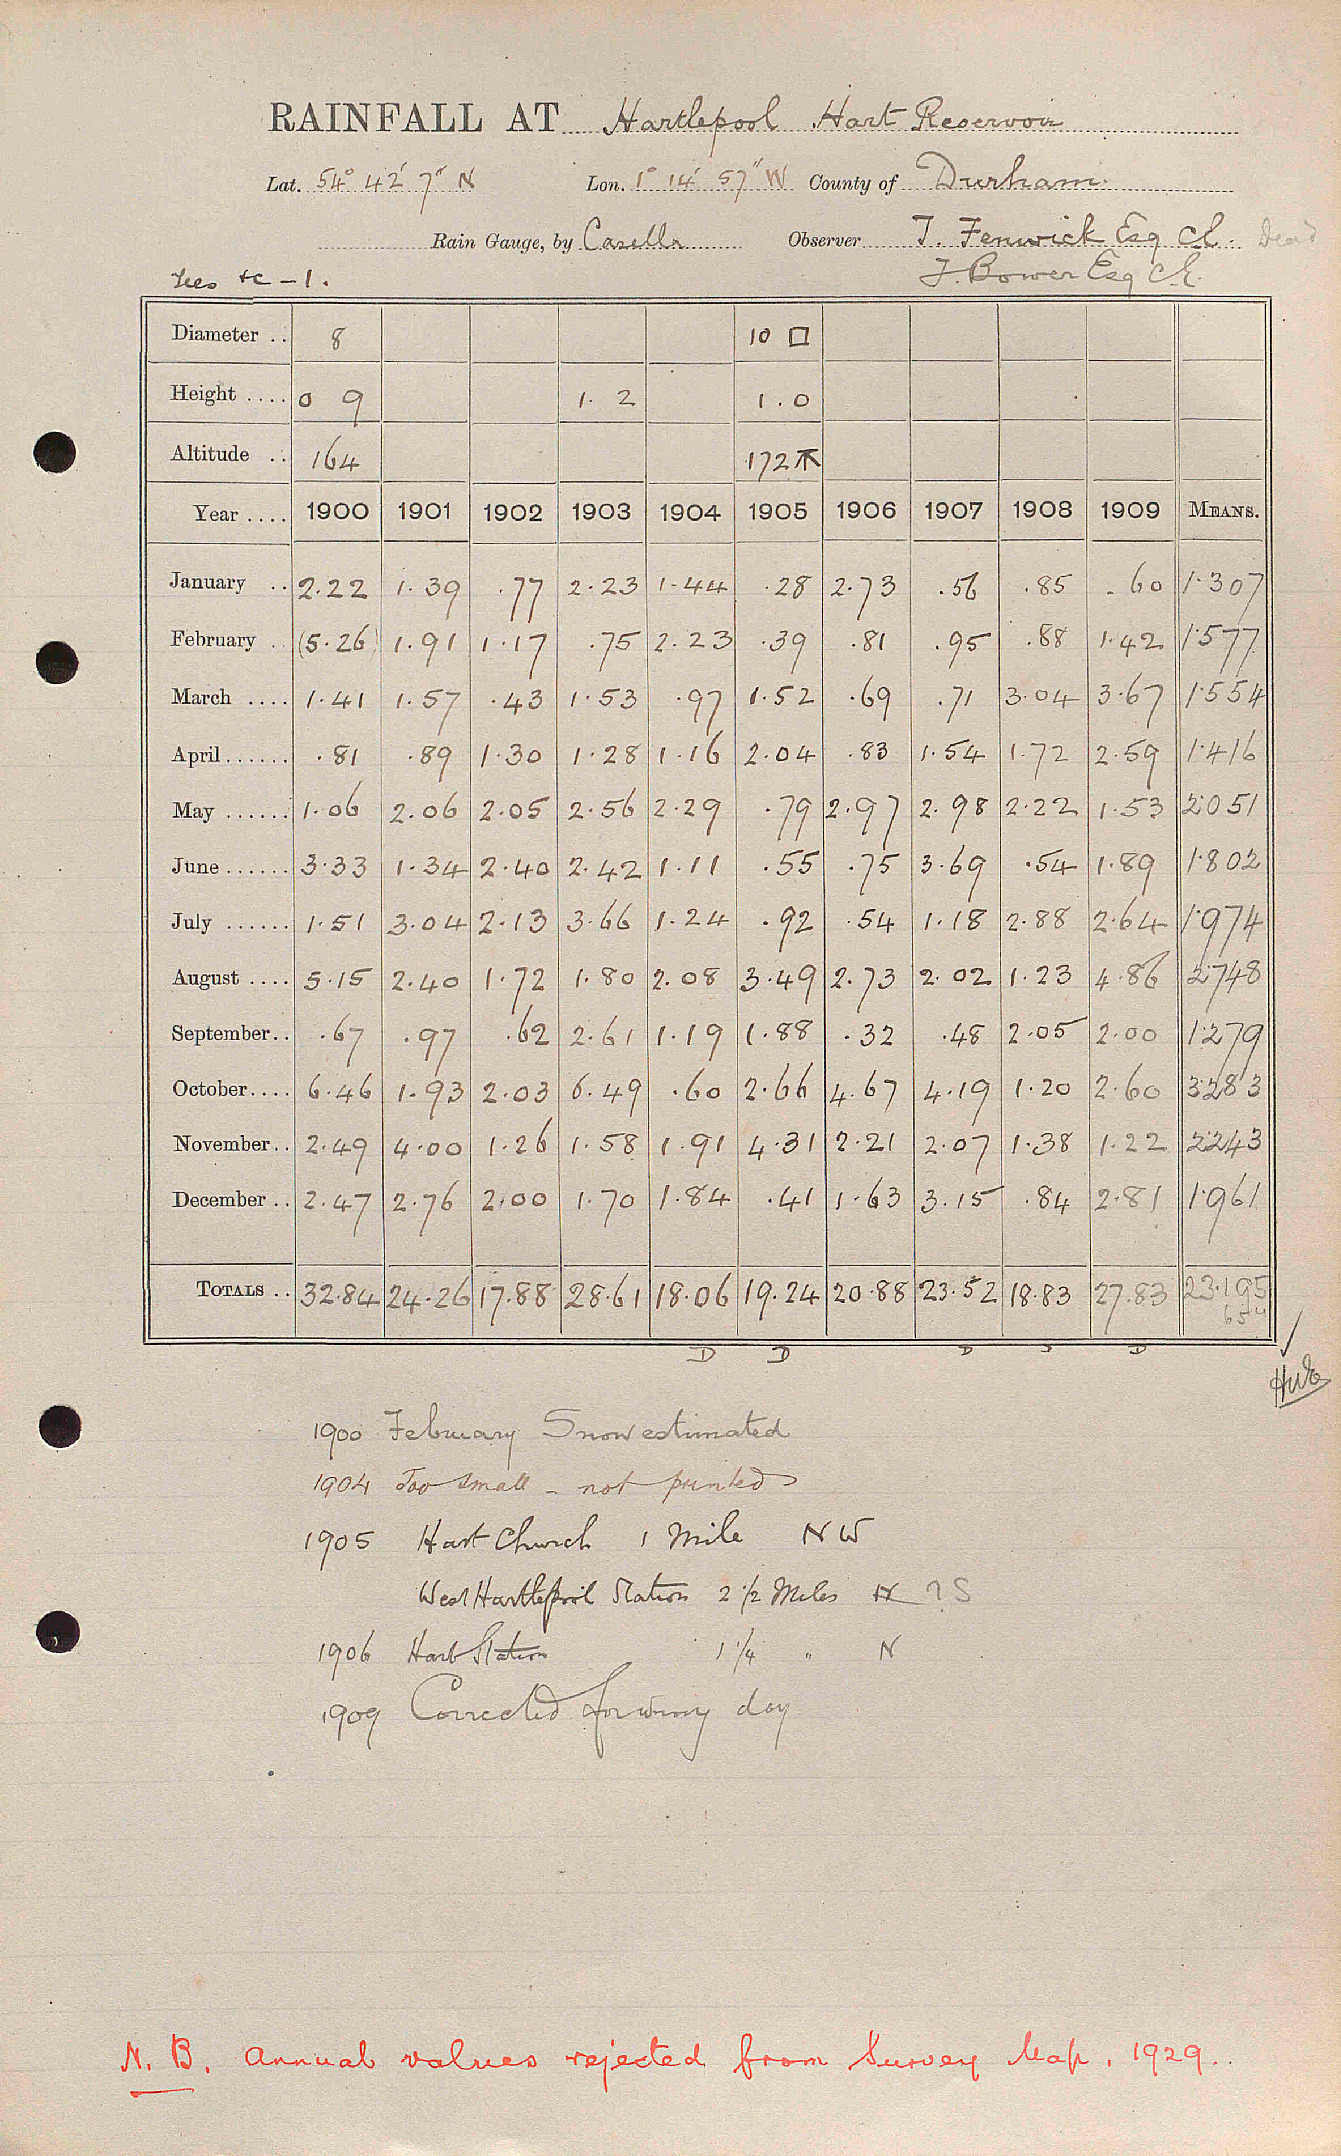 RAINFALL AT Hartlepool Hart Reservoir
Lat. 54° 42' 7" N Lon. 1° 14' 57" W County of Durham
Rain Gauge, by Casella Observer T. Fenwick Esq CE. Dead
Tees &c - 1. J. Bower Esq CE.
Diameter .. 8 10 □
Height .... 0 9 1. 2 1.0
Altitude .. 164 172
Year .... 1900 1901 1902 1903 1904 1905 1906 1907 1908 1909 MEANS.
January .. 2.22 1.39 .77 2.23 1.44 .28 2.73 .56 .85 .60 1.307
February .. (5.26) 1.91 1.17 .75 2.23 .39 .81 .95 .88 1.42 1.577
March .... 1.41 1.57 .43 1.53 .97 1.52 .69 .71 3.04 3.67 1.554
April ...... .81 .89 1.30 1.28 1.16 2.04 .83 1.54 1.72 2.59 1.416
May ...... 1.06 2.06 2.05 2.56 2.29 .79 2.97 2.98 2.22 1.53 2.051
June ...... 3.33 1.34 2.40 2.42 1.11 .55 .75 3.69 .54 1.89 1.802
July ...... 1.51 3.04 2.13 3.66 1.24 .92 .54 1.18 2.88 2.64 1.974
August .... 5.15 2.40 1.72 1.80 2.08 3.49 2.73 2.02 1.23 4.86 2.748
September .. .67 .97 .62 2.61 1.19 1.88 .32 .48 2.05 2.00 1.279
October .... 6.46 1.93 2.03 6.49 .60 2.66 4.67 4.19 1.20 2.60 3.283
November .. 2.49 4.00 1.26 1.58 1.91 4.31 2.21 2.07 1.38 1.22 2.243
December .. 2.47 2.76 2.00 1.70 1.84 .41 1.63 3.15 .84 2.81 1.961
TOTALS .. 32.84 24.26 17.88 28.61 18.06 19.24 20.88 23.52 18.83 27.83 23.195
D D D S D
1900 February Snow estimated
1904 Too small - not printed
1905 Hart Church 1 Mile NW
West Hartlepool Station 2 1/2 Miles ? S
1906 Hart Station 1 1/4 " N
1909 Corrected for wrong day
N.B. Annual values rejected from Survey Map. 1929.